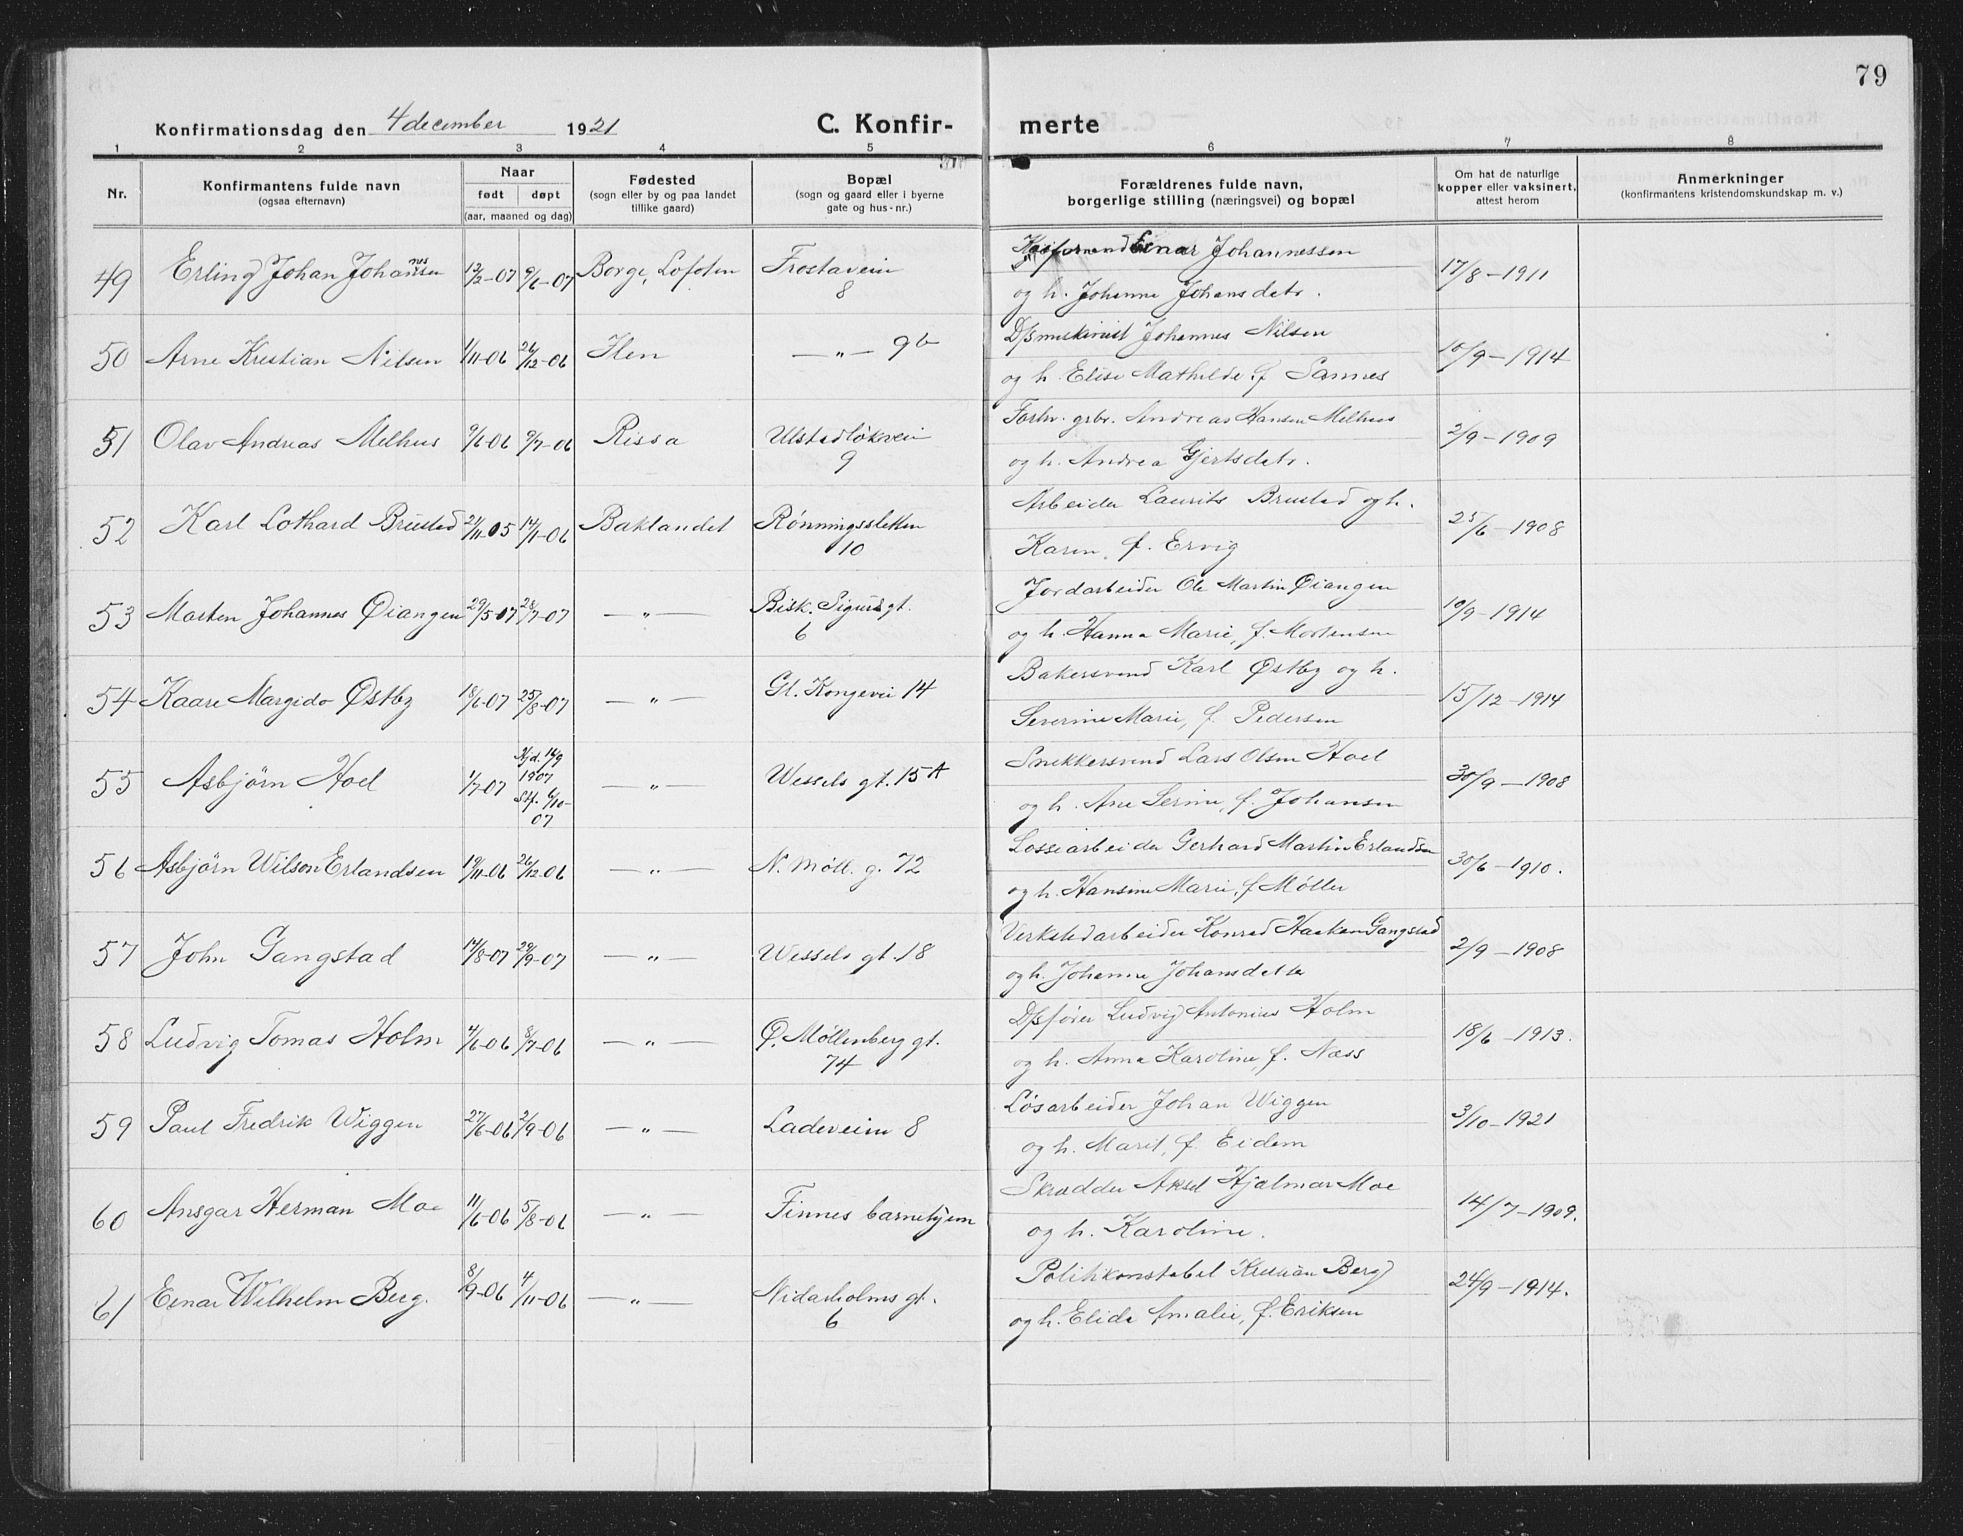 79
Konfirmationsdag den 4 december 1921 C. Konfir- merte
1 2 3 4 5 6 7 8
Nr. Konfirmantens fulde navn (ogsaa efternavn) Naar født døpt (aar, maaned og dag) Fødested (sogn eller by og paa landet tillike gaard) Bopæl (sogn og gaard eller i byerne gate og hus-nr.) Forældrenes fulde navn, borgerlige stilling (næringsvei) og bopæl Om hat de naturlige kopper eller vaksinert, attest herom Anmerkninger (konfirmantens kristendomskundskap m. v.)
49 Erling Johan Johannessen 12/2-07 9/6-07 Borge, Lofoten Frostaveien 8 Einar Johannessen
og h. Johanne Johansdatr. 17/8-1911
50 Arne Kristian Nilsen 1/11-06 26/12-06 Ilen —"— 9b Dpsmaskinist Johannes Nilsen
og h. Elise Mathilde f. Sannes 10/9-1914
51 Olav Andreas Melhus 9/6-06 9/7-06 Rissa Ulstadløkveien 9 Forhv. grbr. Andreas Hansen Melhus
og h. Andrea Gjertsdatr. 2/9-1909
52 Karl Lothard Brustad 21/11-05 14/1-06 Baklandet Rønningsletten 10 Arbeider Laurits Brustad og h.
Karen, f. Ervig 25/6-1908
53 Marten Johannes Øiangen 29/5-07 28/7-07 —"— Bisk. Sigurds gt. 6 Jordarbeider Ole Martin Øiangen
og h. Hanna Marie, f. Mortensen 10/9-1914
54 Kaare Margido Østby 18/6-07 25/8-07 —"— Gl. Kongevei 14 Bakersvend Karl Østby og h.
Severine Marie, f. Pedersen 15/12-1914
55 Asbjørn Hoel 1/7-07 Hjd. 14/9 1907 Stf. 6/10-07 —"— Wessels gt. 15A Snekkersvend Lars Olsen Hoel
og h. Ane Serine, f. Johansen 30/9-1908
56 Asbjørn Wilson Erlandsen 19/11-06 26/12-06 —"— N. Møll. g. 72 Lossearbeider Gerhard Martin Erlandsen
og h. Hansine Marie, f. Møller 30/6-1910.
57 John Gangstad 14/8-07 29/9-07 —"— Wessels gt. 18 Verkstedarbeider Konrad Haaken Gangstad
og h. Johanne Johansdatter 2/9-1908
58 Ludvig Tomas Holm 4/6-06 8/7-06 —"— Ø. Møllenberg gt. 74 Dpsfører Ludvig Antonius Holm
og h. Anna Karoline, f. Næss 18/6-1913.
59 Paul Fredrik Wiggen 27/6-06 2/9-06 —"— Ladeveien 8 Løsarbeider Johan Wiggen
og h. Marit, f. Eidem 3/10-1921
60 Ansgar Herman Moe 11/6-06 5/8-06 —"— Finnes barnehjem Skrædder Aksel Hjalmar Moe
og h. Karoline. 14/7-1909.
61 Einar Wilhelm Berg. 8/9-06 4/11-06 —"— Nidarholms gt. 6 Politikonstabel Kristian Berg
og h. Elida Amalie, f. Eriksen 24/9-1914.